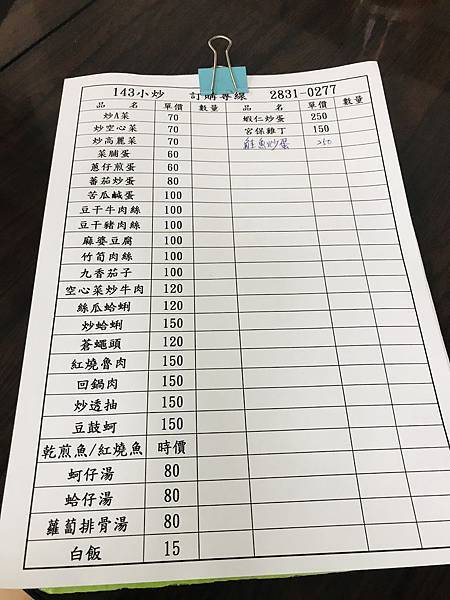 143小炒 訂購專線 2831-0277
品名 單價 數量 品名 單價 數量
炒A菜 70 蝦仁炒蛋 250
炒空心菜 70 宮保雞丁 150
炒高麗菜 70 鮭魚炒蛋 250
菜脯蛋 60
蔥仔煎蛋 60
蕃茄炒蛋 80
苦瓜鹹蛋 100
豆干牛肉絲 100
豆干豬肉絲 100
麻婆豆腐 100
竹筍肉絲 100
九香茄子 100
空心菜炒牛肉 120
絲瓜蛤蜊 120
炒蛤蜊 150
蒼蠅頭 120
紅燒魯肉 150
回鍋肉 150
炒透抽 150
豆鼓蚵 150
乾煎魚/紅燒魚 時價
蚵仔湯 80
蛤仔湯 80
蘿蔔排骨湯 80
白飯 15